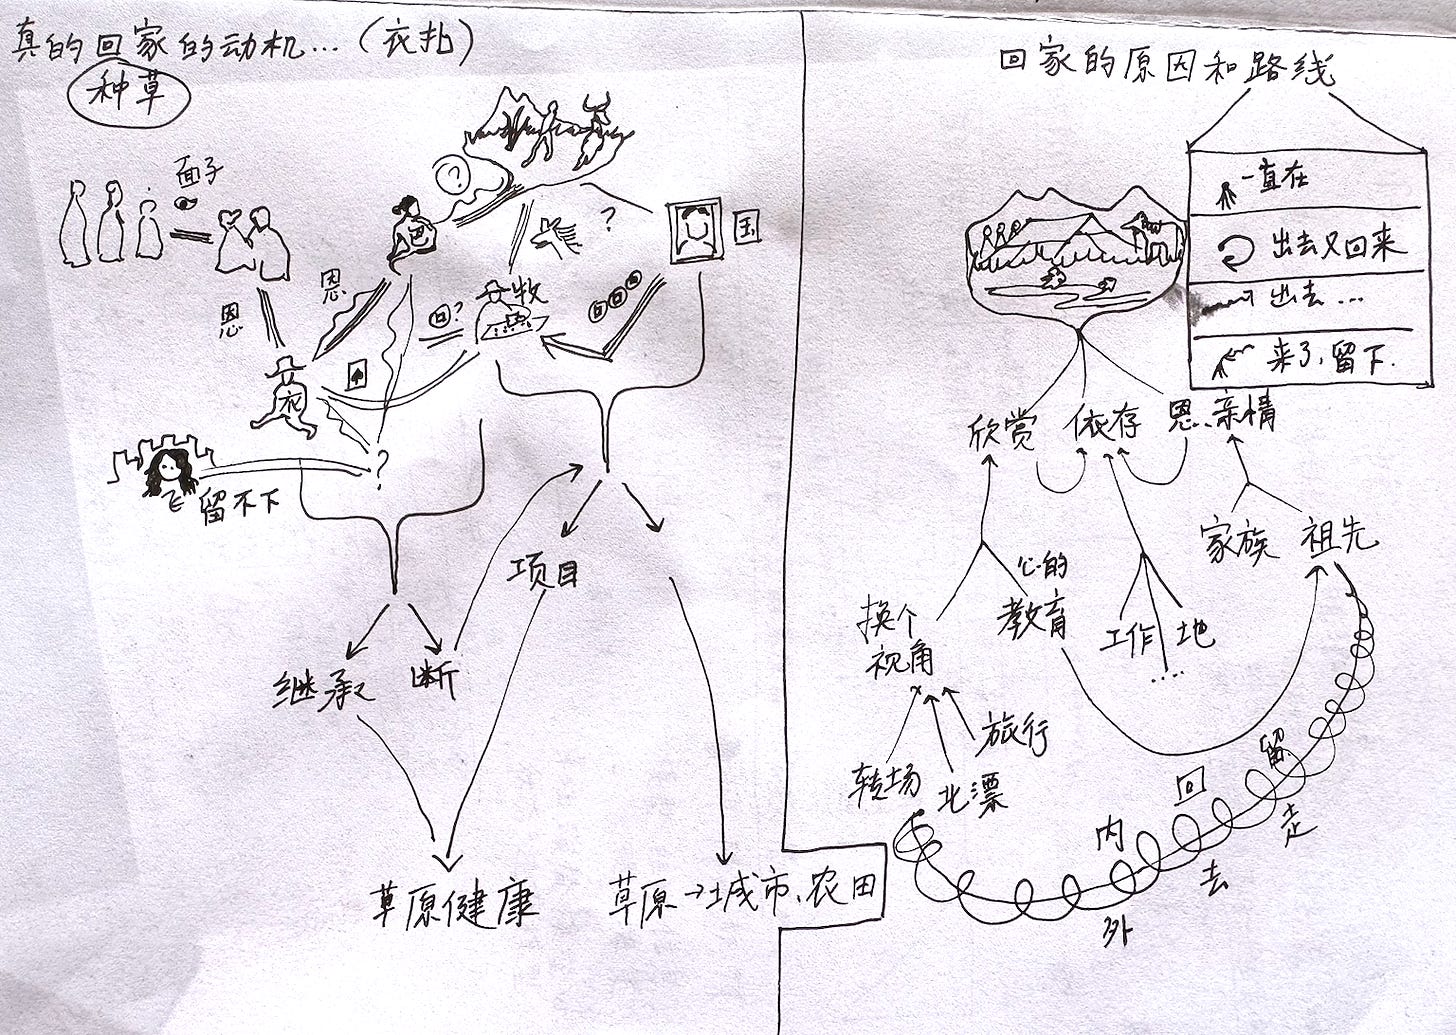 真的回家的动机…（衣扎）
种草
面子
?
?
国
恩
恩
牧
回?
回回回
衣
?
飞 留不下
项目
继承 断
草原健康
草原→城市、农田
回家的原因和路线
一直在
出去又回来
出去…
来了，留下.
欣赏 依存 恩、亲情
家族 祖先
心的
教育
换个
视角
工作 地
…
旅行
转场 北漂
留
走
回
去
内
外